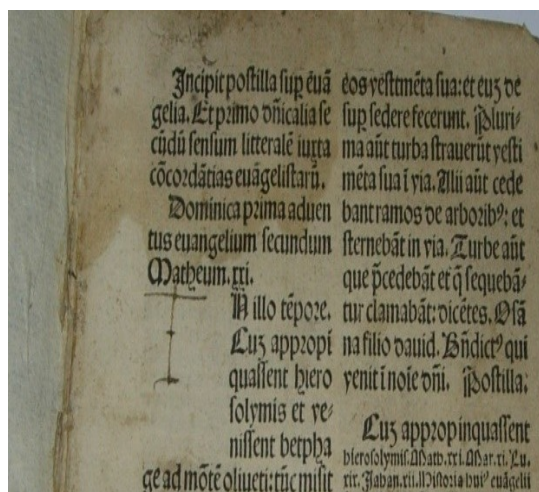 Incipit postilla sup̲ euā
gelia. Et primo dn̄icalia se
cūdū sensum litteralē iuxta
cōcordātias euāgelistarū.
Dominica prima aduen
tus euangelium secundum
Matheum.xxi.
N illo tēpore.
Cuꝫ appropi
quassent hiero
solymis et ve⸗
nissent betpha
ge ad mōtē oliueti: tūc misit
eos vestimēta sua: et euꝫ de
sup̲ sedere fecerunt. Pluri⸗
ma aūt turba strauerūt vesti
mēta sua ī via. Alii aūt cede
bant ramos de arboribꝰ: et
sternebāt in via. Turbe aūt
que p̄cedebāt et q̄ sequebā⸗
tur clamabāt: dicētes. Osā
na filio dauid. Bn̄dictꝰ qui
venit ī noīe dn̄i. Postilla.
Cuꝫ appropinquassent
hierosolymis. Math.xxi. Mar.xi. Lu.
xix. Johan.xii. Historia huiꝰ euāgelii